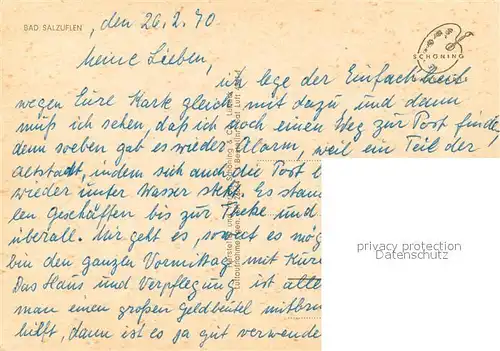 BAD SALZUFLEN
, den 26.2.70
SCHÖNING
Meine Lieben,
ich lege der Einfachheit
wegen Eure Karte gleich mit dazu, und dann
muß ich sehen, daß ich noch einen Weg zur Post finde,
denn soeben gab es wieder Alarm, weil ein Teil der
Altstadt, in dem sich auch die Post b
wieder unter Wasser steht. Es stan
len Geschäften bis zur Theke und
überall. Mir geht es, soweit es mög
bin den ganzen Vormittag mit Kur
Das Haus und Verpflegung ist alle
man einen großen Geldbeutel mitbr
hilft, dann ist es ja gut verwende
privacy protection
Datenschutz
Schöning & Co